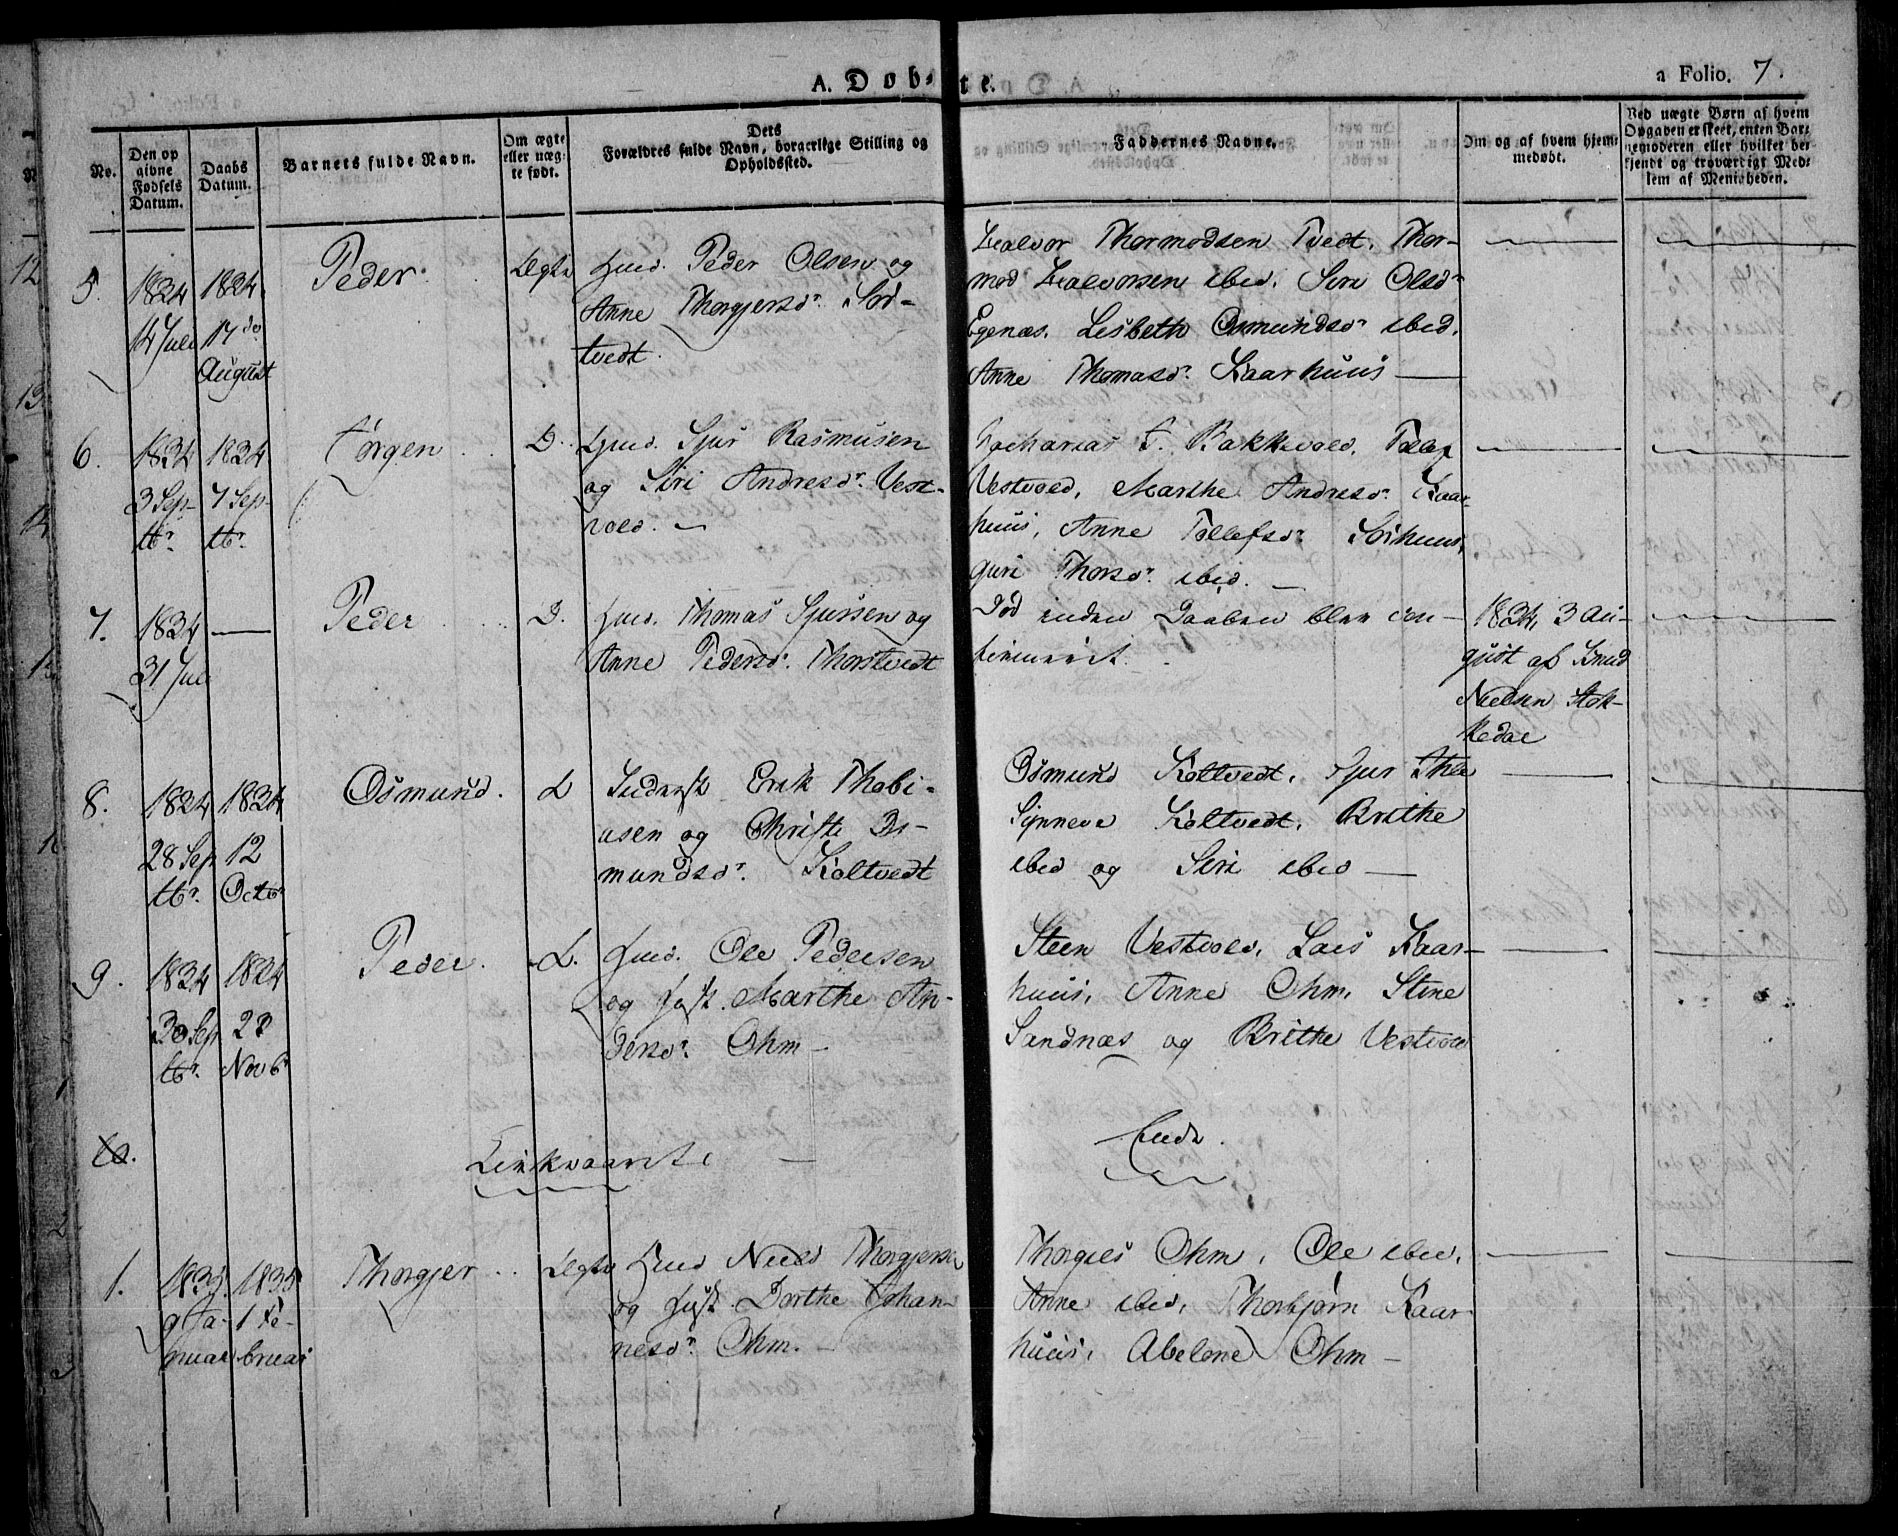 A. Døb-
te.
a Folio. 7.
No.
Den op
givne
Fødsels
Datum.
Daabs
Datum.
Barnets fulde Navn.
Om ægte
eller uæg-
te født.
Dets
Forældres fulde Navn, borgerlige Stilling og
Opholdssted.
Faddernes Navne.
Om og af hvem hjem-
medøbt.
Ved uægte Børn af hvem
Opgaven er skeet, enten Bar-
nemoderen eller hvilket be-
kjendt og troværdigt Med-
lem af Menigheden.
5.
1834
14 Juli
1834
17de
August
Peder.
Ægte
Huus. Peder Olsen og
Anne Thorgjersdr. Sør-
tvedt.
Halvor Thormodsen Tvedt, Thor-
mod Halvorsen ibid. Siri Olsdr
Egenæs. Lisbeth Osmundsdr ibid.
Anne Thomasdr. Kaarhuus
6.
1834
3 Sep-
tbr.
1834
7 Sep-
tbr.
Jørgen
D.
Huus. Sjur Rasmusen
og Siri Andresdr. Vest-
vold.
Zacharias T. Bakkevold, Tollef
Vestvold, Marthe Andresdr. Kaar-
huus, Anne Tollefsdr Sørhuus,
Guri Thorsdr. ibid.
7.
1834
31 Juli
Peder
D.
Huus. Thomas Sjursen og
Anne Pedersdr. Thorstvedt
Død inden Daaben blev con-
firmeret.
1834, 3 Au-
gust af Knud
Nielsen Stok-
kedal
8.
1834
28 Sep
tbr.
1834
12
Octbr
Osmund.
D
Inderst Erik Thobi-
asen og Christi Os-
mundsdr. Koltvedt
Osmund Koltvedt, Sjur
Synneve Koltvedt, Brithe
ibid og Siri ibid
9.
1834
30 Sep
tbr.
1834
23
Novbr
Peder.
D.
Huus. Ole Pedersen
og Hust. Marthe An-
dersdr. Ohm
Steen Vestvold, Lars Kaar-
huus, Anne Ohm, Stine
Sandnæs og Brithe Vestvold
10.
Ende.
1.
1835.
9 Ja-
nuar
1835
1 Fe-
bruar
Thorgjer
Ægte
Huus Niels Thorgjersen
og Hust. Dorthe Johan-
nesdr. Ohm.
Thorgies Ohm, Ole ibid.
Anne ibid, Thorbjørn Kaar-
huus, Abelone Ohm